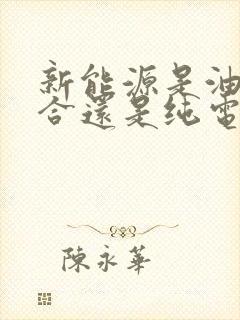 新能源是油
合還是纯電
陳永華